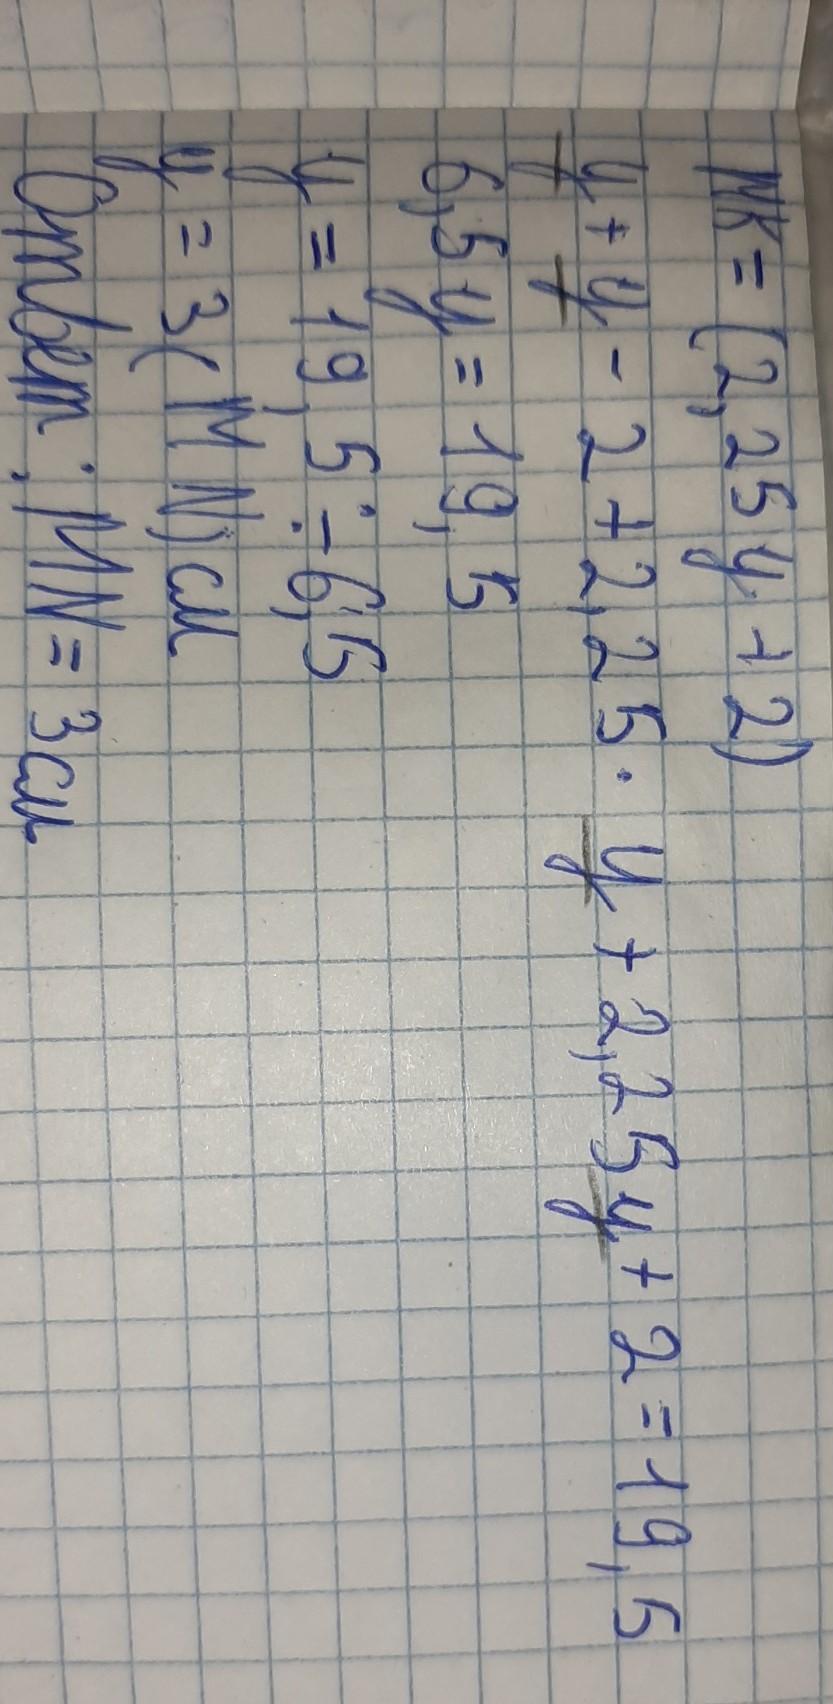 NK = (2,25y + 2)
y + y - 2 + 2,25 · y + 2,25y + 2 = 19,5
6,5y = 19,5
y = 19,5 ÷ 6,5
y = 3 (MN) см
Ответ: MN = 3 см